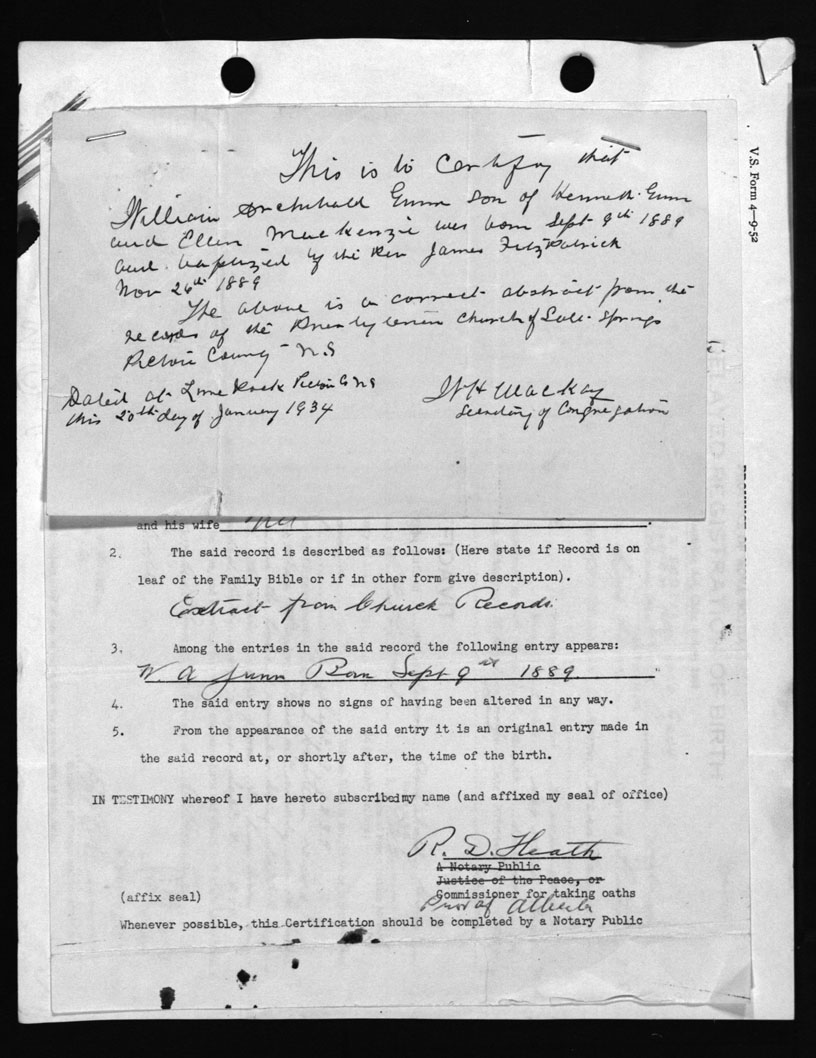 V.S. Form 4—9-52
This is to Certify that
William Archibald Gunn son of Kenneth Gunn
and Ellen MacKenzie was born Sept 9th 1889
and baptized by the Rev James Fitzpatrick
Nov 26th 1889
The above is a correct abstract from the
records of the Presbyterian Church of Salt Springs
Pictou County N.S
Dated at Lime Rock Pictou Co NS
this 20th day of January 1934
W H MacKay
Secretary of Congregation
and his wife
2. The said record is described as follows: (Here state if Record is on
leaf of the Family Bible or if in other form give description).
Extract from Church Records.
3. Among the entries in the said record the following entry appears:
W. A Gunn Born Sept 9th 1889.
4. The said entry shows no signs of having been altered in any way.
5. From the appearance of the said entry it is an original entry made in
the said record at, or shortly after, the time of the birth.
IN TESTIMONY whereof I have hereto subscribed my name (and affixed my seal of office)
R. D. Heath
A Notary Public
Justice of the Peace, or
(affix seal) Commissioner for taking oaths
Prov of Alberta
Whenever possible, this Certification should be completed by a Notary Public